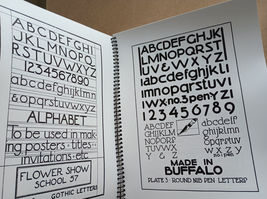 ABCDEFGHI
JKLMNOPQ
RSTUVWXYZ
1234567890
abcdefghijklmn
opqrstuvwxyz
ALPHABET
To be used in mak
ing posters · titles · ·
invitations · etc
FLOWER SHOW
SCHOOL 57
GOTHIC LETTERS
ABCDEFGHI
JKLMNOPQRST
U&VWXYZ
abcdefghijkl
mnopqrstuv
wxyz.no.3 pen
123456789
ABCDEF
GHIJKLM
NOPQRS
TUVWXY
Z
MADE IN
BUFFALO
PLATE 3 · ROUND NIB PEN LETTERS